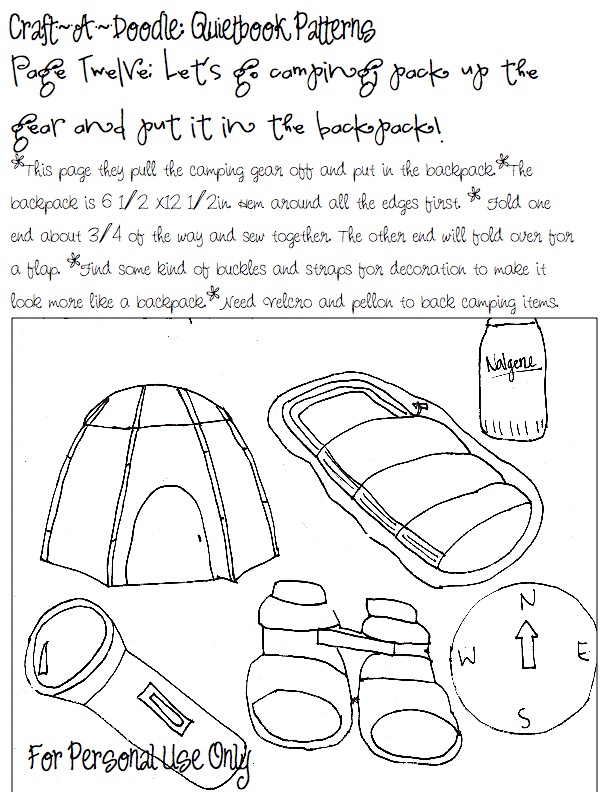 Craft~A~Doodle: Quietbook Patterns
Page Twelve: Let's go camping, pack up the
gear and put it in the backpack!
*This page they pull the camping gear off and put in the backpack.*The
backpack is 6 1/2 x12 1/2in. Hem around all the edges first. * Fold one
end about 3/4 of the way and sew together. The other end will fold over for
a flap. *Find some kind of buckles and straps for decoration to make it
look more like a backpack.*Need velcro and pellon to back camping items.
Nalgene
N
W E
S
For Personal Use Only